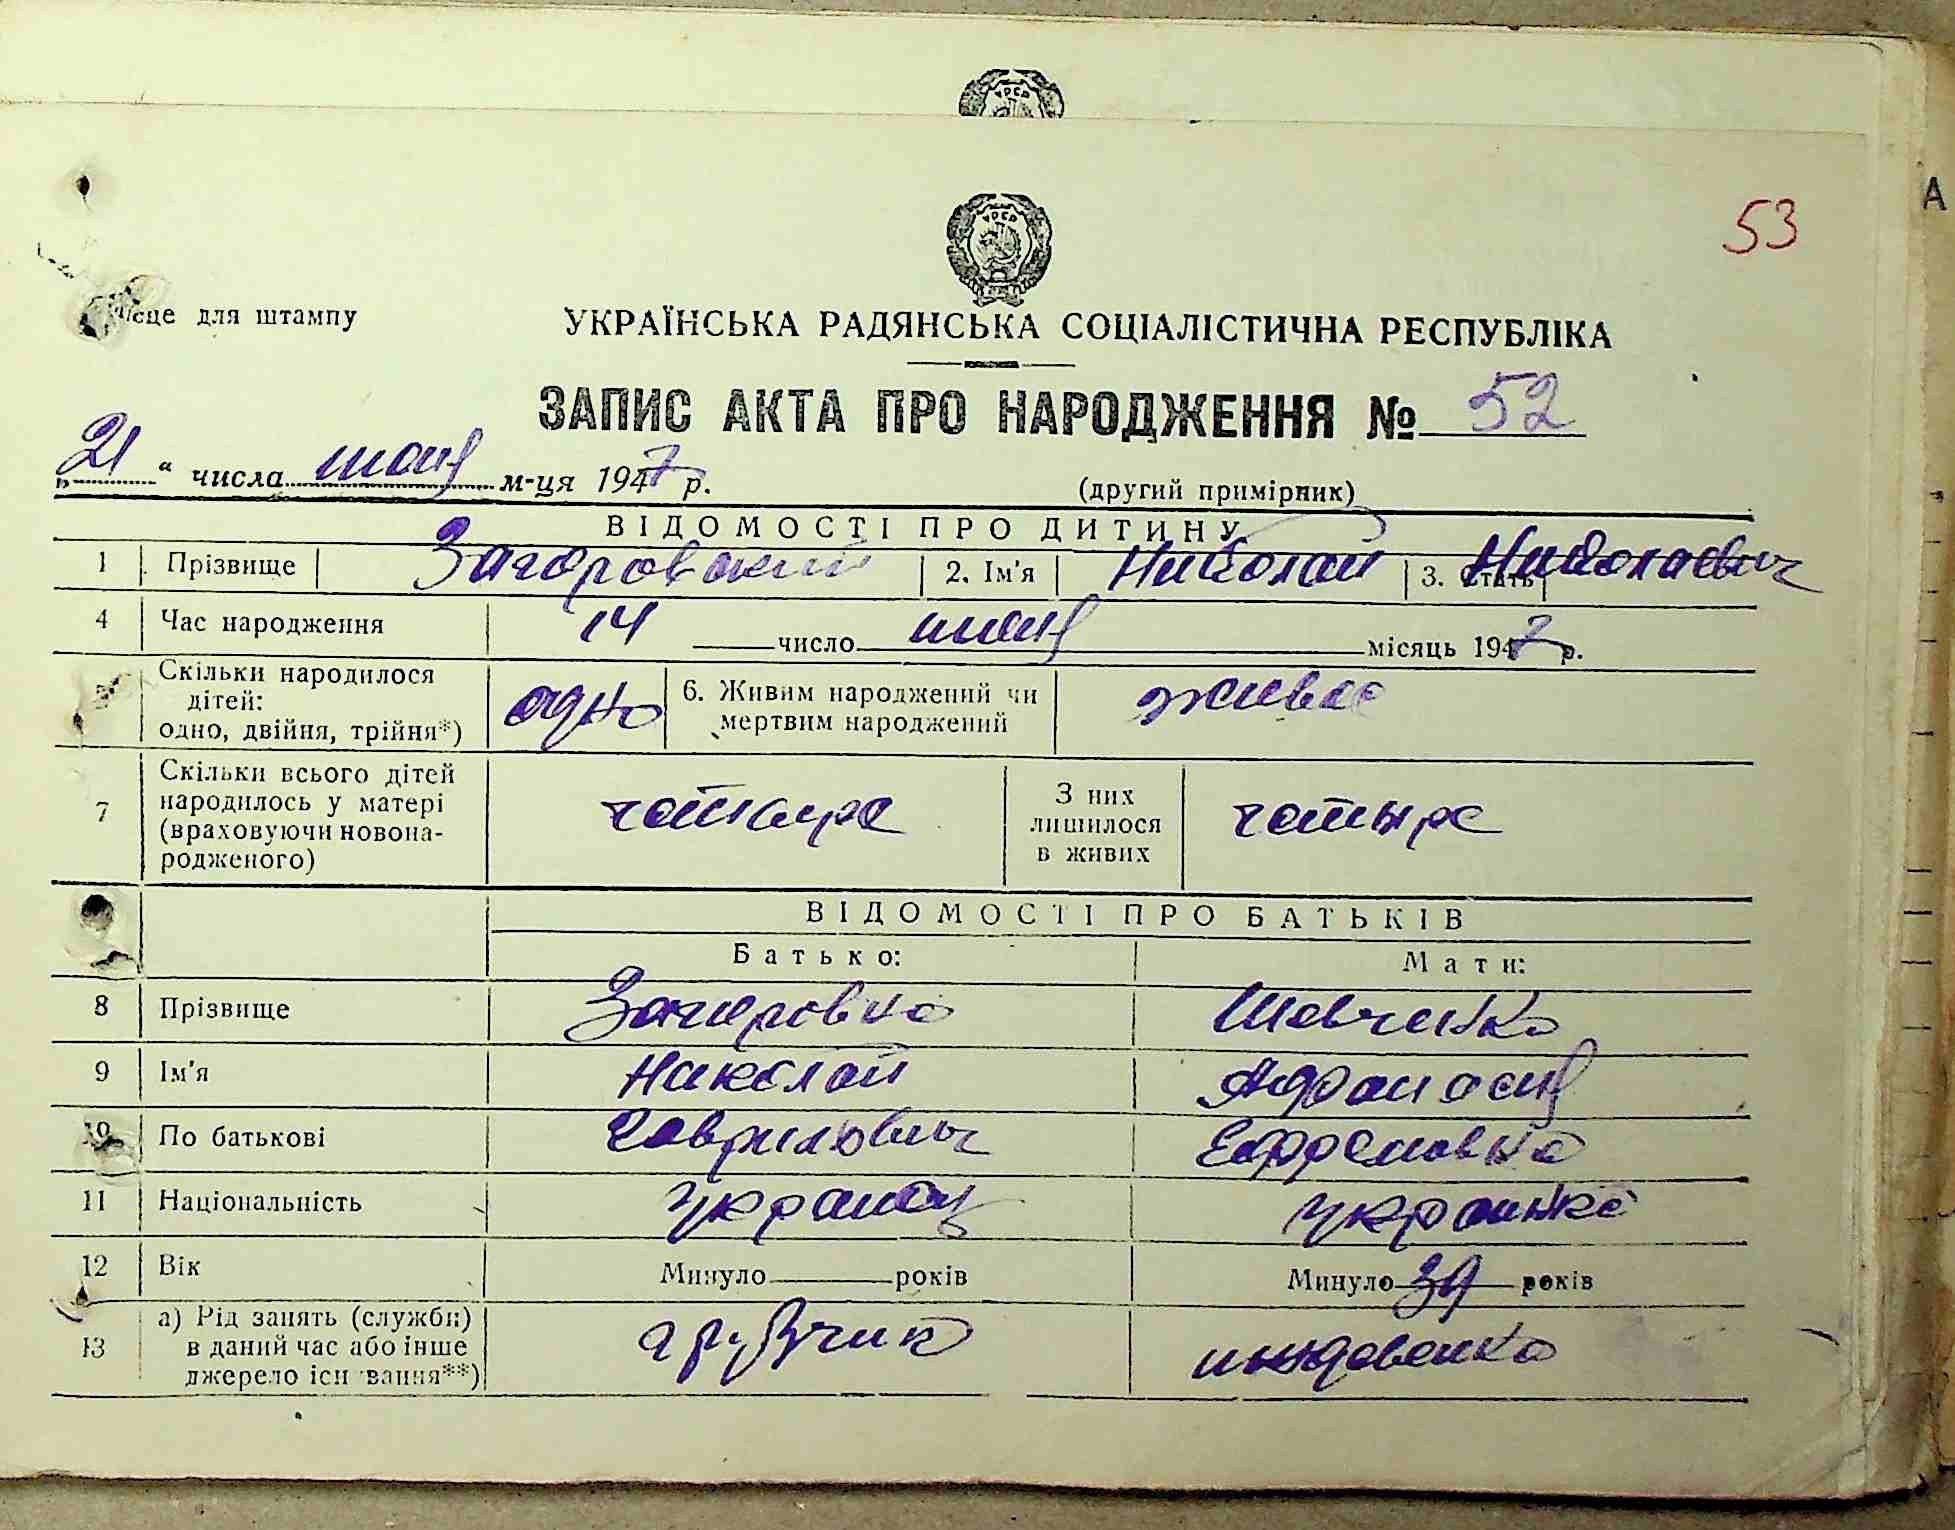 УРСР
А
53
УРСР
Місце для штампу
УКРАЇНСЬКА РАДЯНСЬКА СОЦІАЛІСТИЧНА РЕСПУБЛІКА
ЗАПИС АКТА ПРО НАРОДЖЕННЯ № 52
„21“ числа июня м-ця 1947 р.
(другий примірник)
ВІДОМОСТІ ПРО ДИТИНУ
1 Прізвище Загоровский 2. Ім'я Николай 3. Стать Николаевич
4 Час народження 14 число июня місяць 1947 р.
5 Скільки народилося дітей: одно, двійня, трійня*) одно 6. Живим народжений чи мертвим народжений
7 Скільки всього дітей народилось у матері (враховуючи новонародженого) четыре З них лишилося в живих четыре
ВІДОМОСТІ ПРО БАТЬКІВ
Батько: Мати:
8 Прізвище Шевченко
9 Ім'я Николай Афанасия
10 По батькові Гаврилович Ефремовна
11 Національність украинец украинка
12 Вік Минуло роки Минуло 39 років
13 а) Рід занять (служби) в даний час або інше джерело існування**) грузчик иждевенка